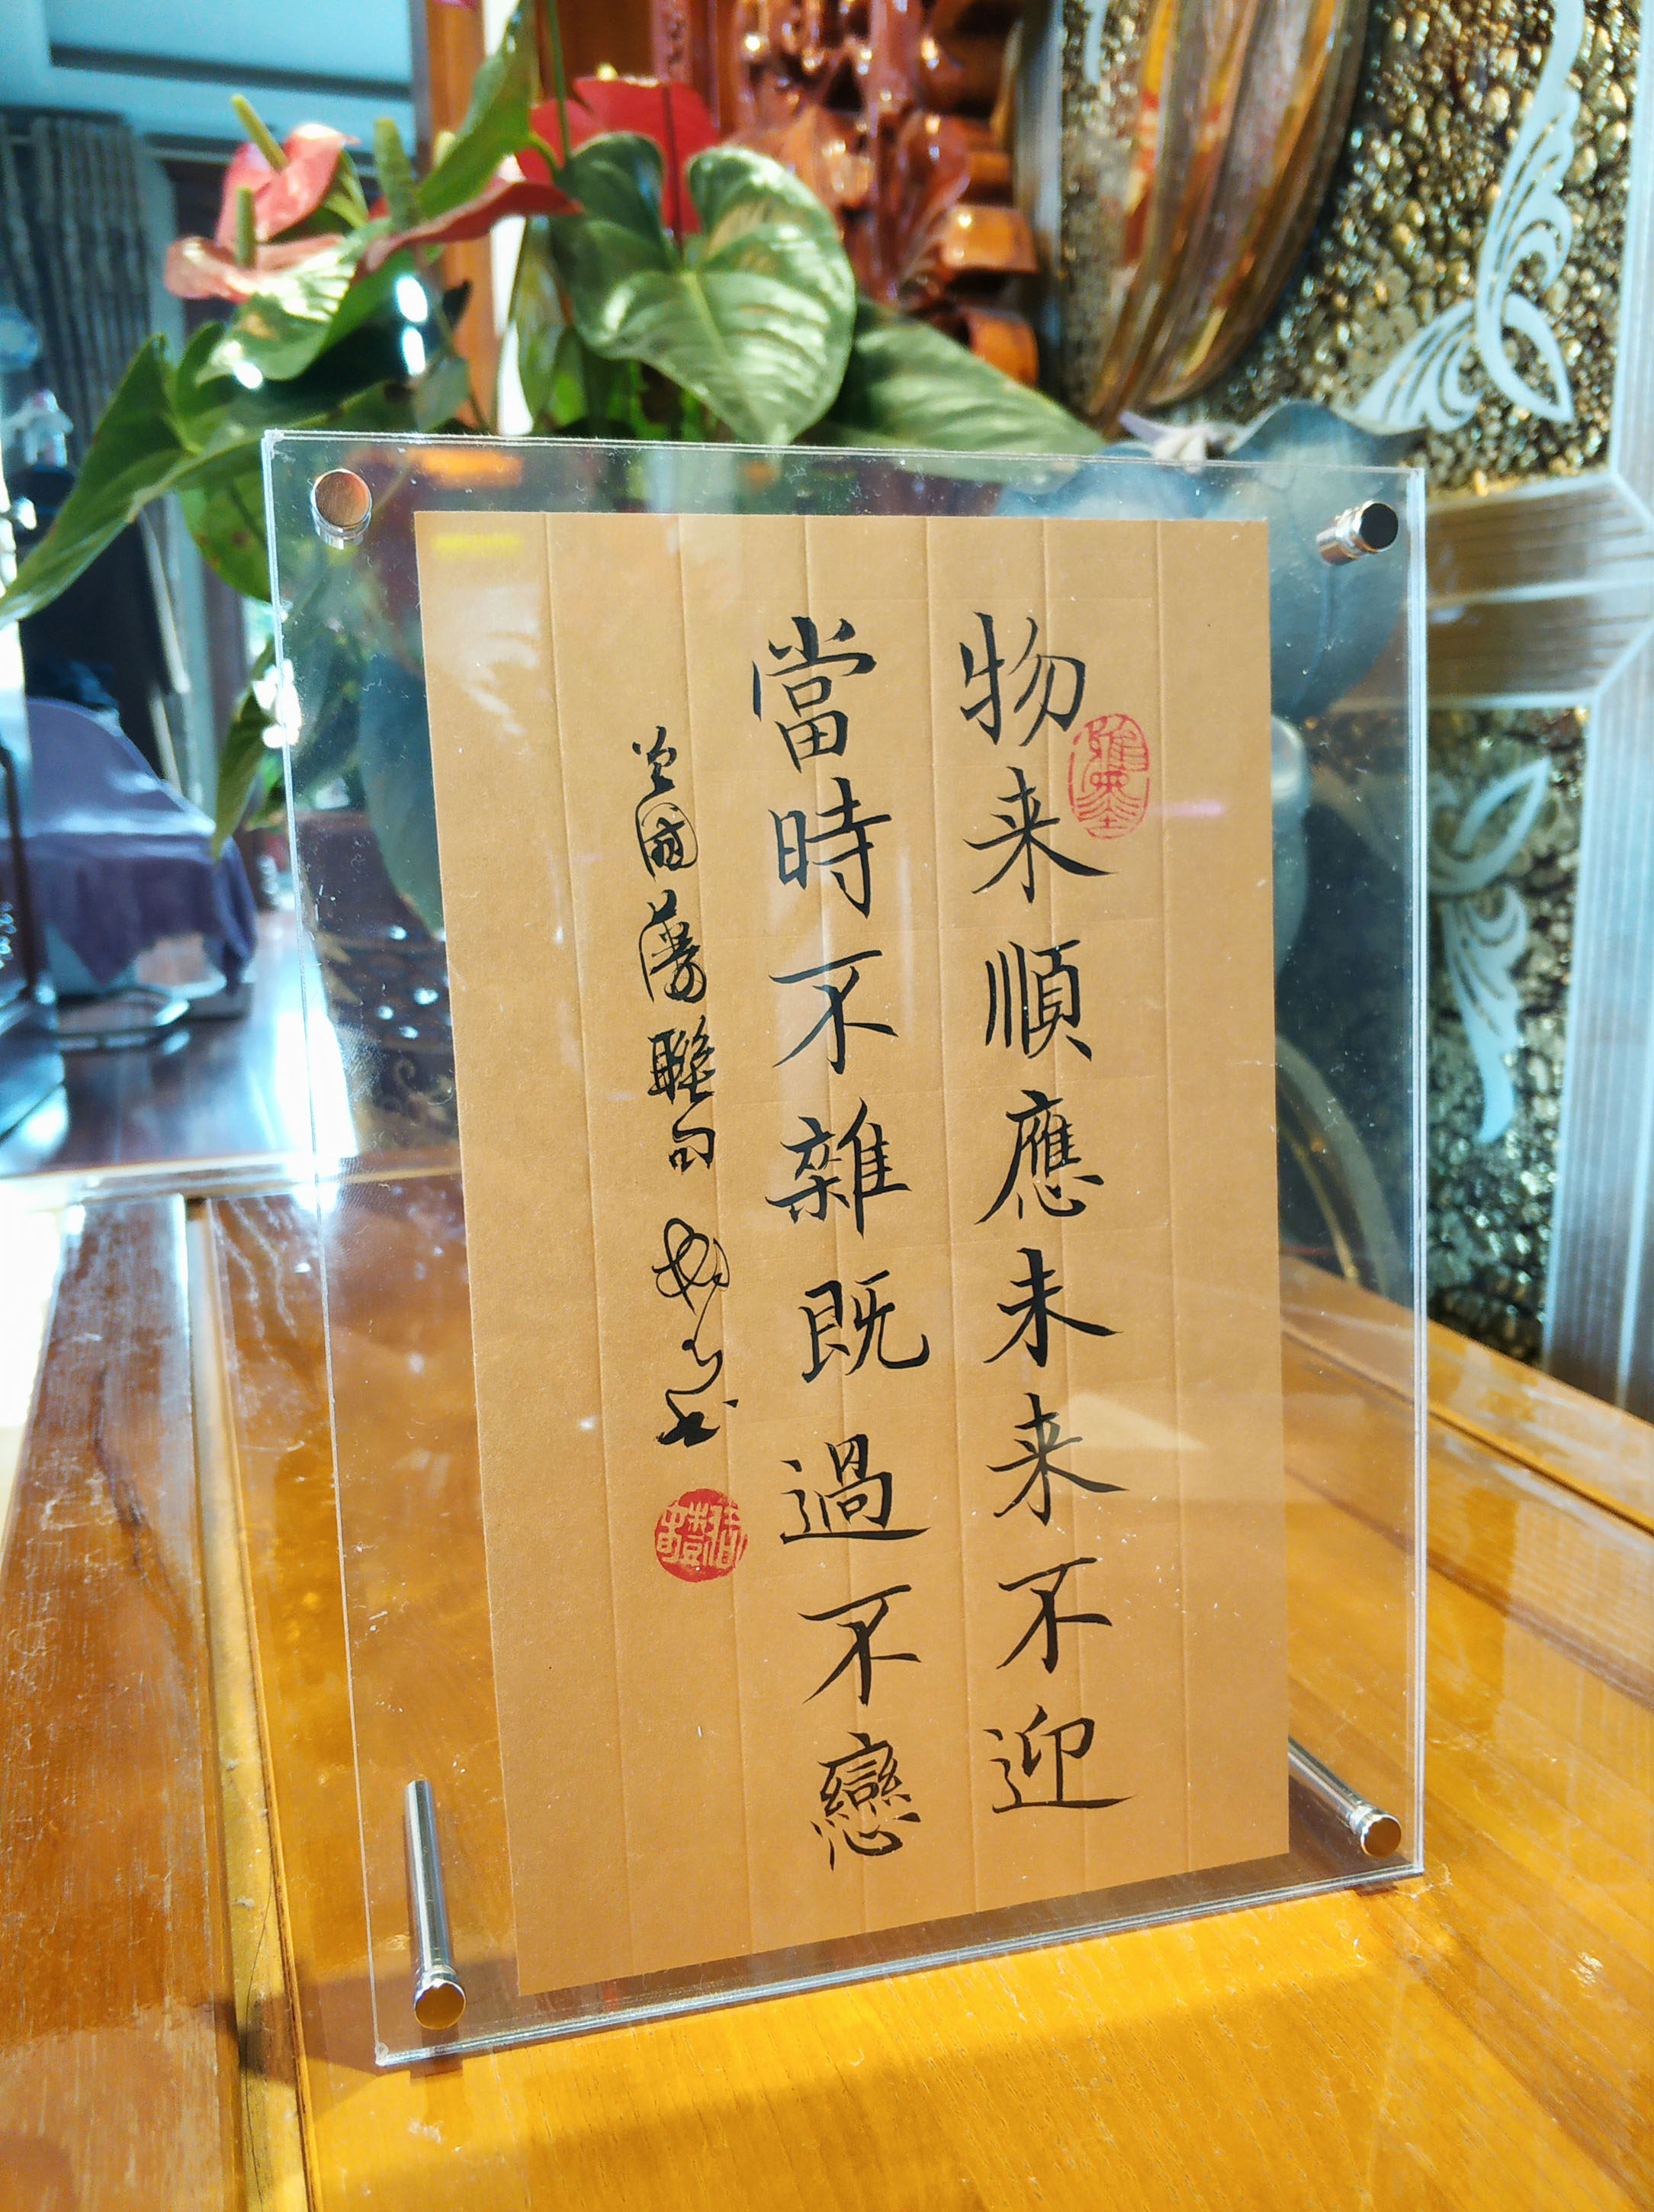 物来順應未来不迎
當時不雜既過不戀
曾國藩聯句